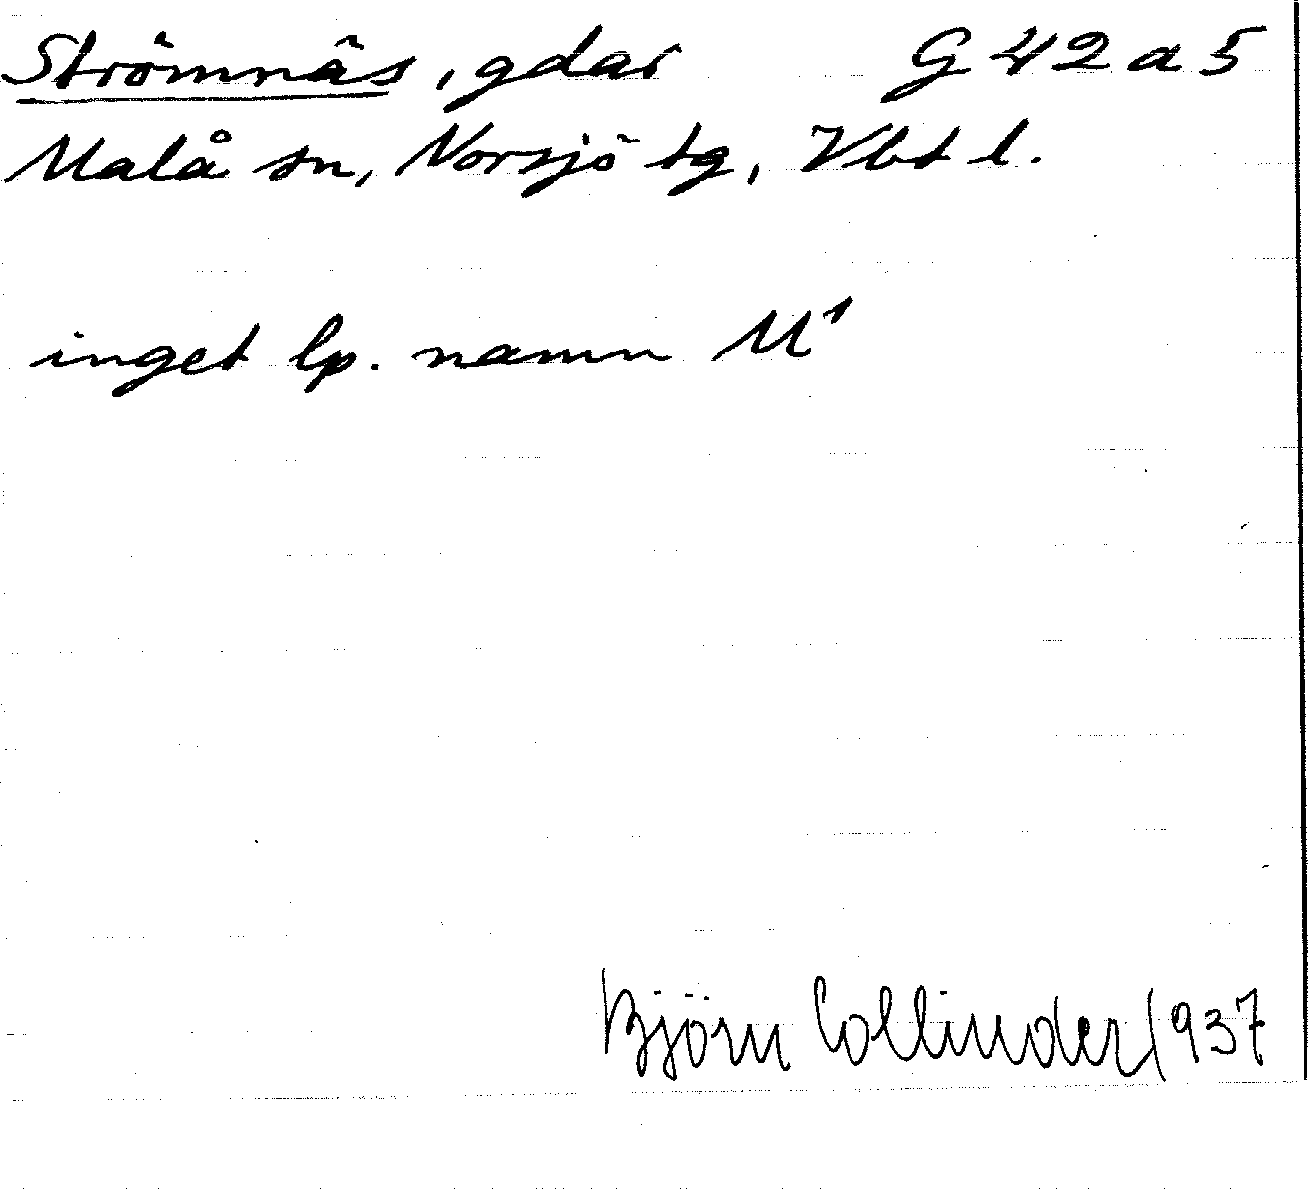 Strömnäs, gdar G 42 a 5
Malå sn, Norsjö tg, Vbt l.
inget lp. namn M¹
Björn Collinder 1937